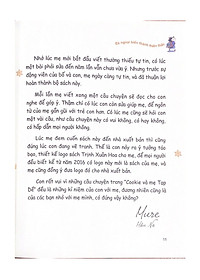 Nhớ lúc mẹ mới bắt đầu viết thường thiếu tự tin, có lúc
một bài phải sửa đến năm lần vẫn chưa vừa ý. Nhưng trước sự
động viên của bố và con, mẹ ngày càng tự tin, và đã thuận lợi
hoàn thành bộ sách này.
Mỗi lần mẹ viết xong một câu chuyện sẽ đọc cho con
nghe để góp ý. Thậm chí có lúc con còn sửa giúp mẹ, để ngôn
từ của mẹ gần gũi với trẻ con hơn. Có lúc mẹ cũng sẽ hỏi con
một vài câu, như câu chuyện này có vui không, có hay không,
có hấp dẫn mọi người không.
Lúc mẹ đem cuốn sách này đến nhà xuất bản thì cũng
đúng lúc con đang vẽ tranh. Thế là con nảy ra ý tưởng tự tay
thiết kế logo sách Trịnh Xuân Hoa cho mẹ, để mọi người đều
biết kể từ năm 2016 sách có logo này mới là sách của mẹ, và
mẹ cũng đồng ý đưa logo đó cho nhà xuất bản.
Con rất vui vì những câu chuyện trong "Cookie và mẹ Tạp
Dề" đều là những kỉ niệm của con với mẹ, đương nhiên cũng là
của các bạn nhỏ với mẹ mình, có đúng vậy không?
11